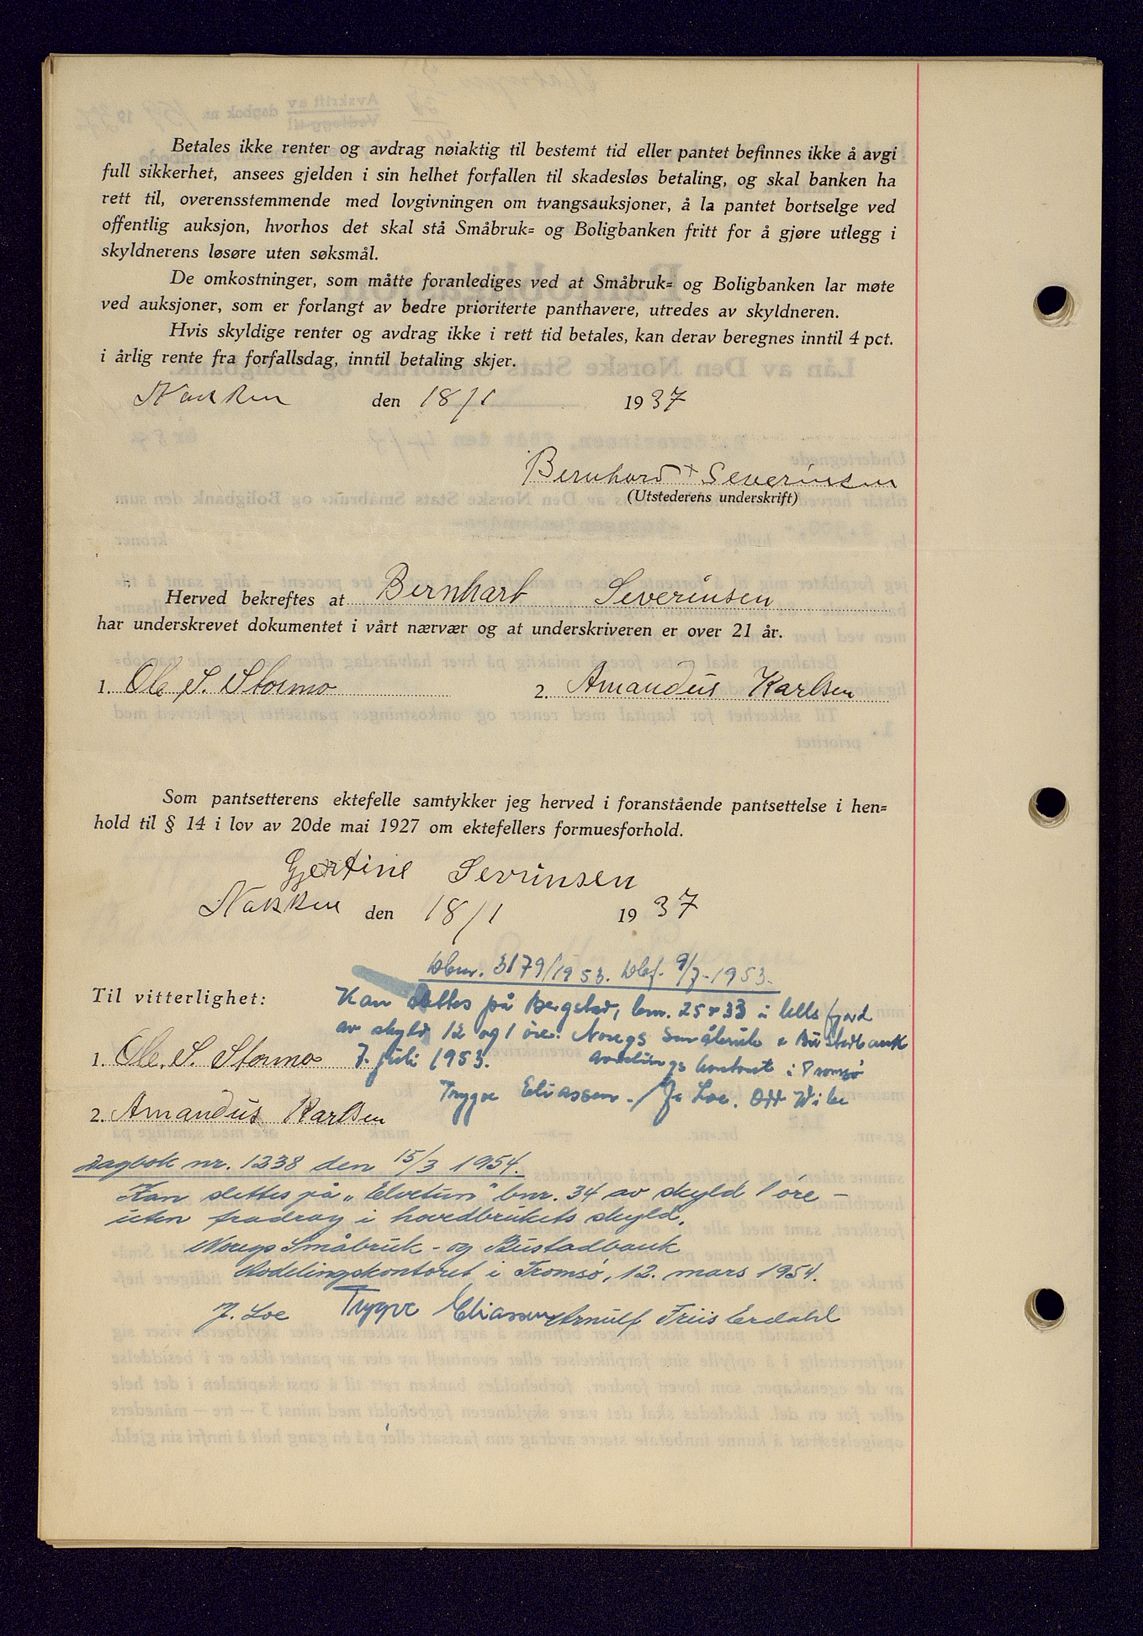 Betales ikke renter og avdrag nøiaktig til bestemt tid eller pantet befinnes ikke å avgi
full sikkerhet, ansees gjelden i sin helhet forfallen til skadesløs betaling, og skal banken ha
rett til, overensstemmende med lovgivningen om tvangsauksjoner, å la pantet bortselge ved
offentlig auksjon, hvorhos det skal stå Småbruk= og Boligbanken fritt for å gjøre utlegg i
skyldnerens løsøre uten søksmål.
De omkostninger, som måtte foranlediges ved at Småbruk= og Boligbanken lar møte
ved auksjoner, som er forlangt av bedre prioriterte panthavere, utredes av skyldneren.
Hvis skyldige renter og avdrag ikke i rett tid betales, kan derav beregnes inntil 4 pct.
i årlig rente fra forfallsdag, inntil betaling skjer.
Nakken den 18/1 1937
Bernhard Severinsen
(Utstederens underskrift)
Herved bekreftes at Bernhart Severinsen
har underskrevet dokumentet i vårt nærvær og at underskriveren er over 21 år.
1. Ole S. Stormo 2. Amandus Karlsen
Som pantsetterens ektefelle samtykker jeg herved i foranstående pantsettelse i hen=
hold til § 14 i lov av 20de mai 1927 om ektefellers formuesforhold.
Gjertine Sevrinsen
Nakken den 18/1 1937
Dbnr. 3179/1953. Dbf. 9/7-1953.
Til vitterlighet:
Kan slettes på Bergstad, bnr. 25 + 33 i Ullsfjord
av skyld 12 og 1 øre. Noregs Småbruk & Bustadbank
1. Ole. S. Stormo 7. juli 1953. avdelingskontoret i Tromsø
Trygve Eliassen. J. Loe. Odd Wibe
2. Amandus Karlsen
Dagbok nr. 1238 den 15/3 1954.
Kan slettes på "Elvetun" bnr. 34 av skyld 1 øre -
uten fradrag i hovedbrukets skyld.
Noregs Småbruk- og Bustadbank
Avdelingskontoret i Tromsø, 12. mars 1954.
J. Loe Trygve Eliassen Arnulf Friis Erdahl